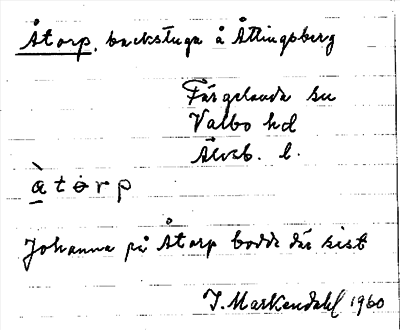 Åtorp, backstuga å Åttingsberg
Färgelanda sn
Valbo hd
Älvsb. l.
àtorp
Johanna på Åtorp bodde där sist
I. Markendahl 1960